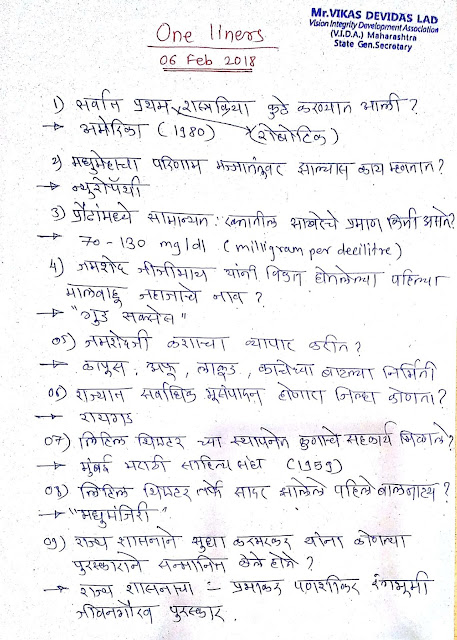 Mr.VIKAS DEVIDAS LAD
Vision Integrity Development Association
(V.I.D.A.) Maharashtra
State Gen.Secretary
One liners
06 Feb 2018
1) सर्वात प्रथम शस्त्रक्रिया कुठे करण्यात आली ?
→ अमेरिका (1980) (रोबोटिक)
2) मधुमेहाचा परिणाम मज्जातंतूवर झाल्यास काय म्हणतात ?
→ न्युरोपॅथी
3) प्रौढांमध्ये सामान्यत: रक्तातील साखरेचे प्रमाण किती असते?
→ 70 - 130 mg/dl (milligram per decilitre)
4) जमशेद जीजीभाय यांनी विकत घेतलेल्या पहिल्या
मालवाहू जहाजाचे नाव ?
→ "गुड सक्सेस"
05) जमशेदजी कशाचा व्यापार करीत ?
→ कापूस, अफू, लाकूड, काचेच्या बाटल्या निर्मिती
06) राज्यात सर्वाधिक भूसंपादन होणारा जिल्हा कोणता?
→ रायगड
07) लिटिल थिएटर च्या स्थापनेत कुणाचे सहकार्य मिळाले ?
→ मुंबई मराठी साहित्य संघ (1959)
08) लिटिल थिएटर तर्फे सादर झालेले पहिले बालनाट्य ?
→ "मधुमंजिरी"
09) राज्य शासनाने सुधा करमरकर यांना कोणत्या
पुरस्काराने सन्मानित केले होते ?
→ राज्य शासनाचा - प्रभाकर पणशीकर रंगभूमी
जीवनगौरव पुरस्कार.